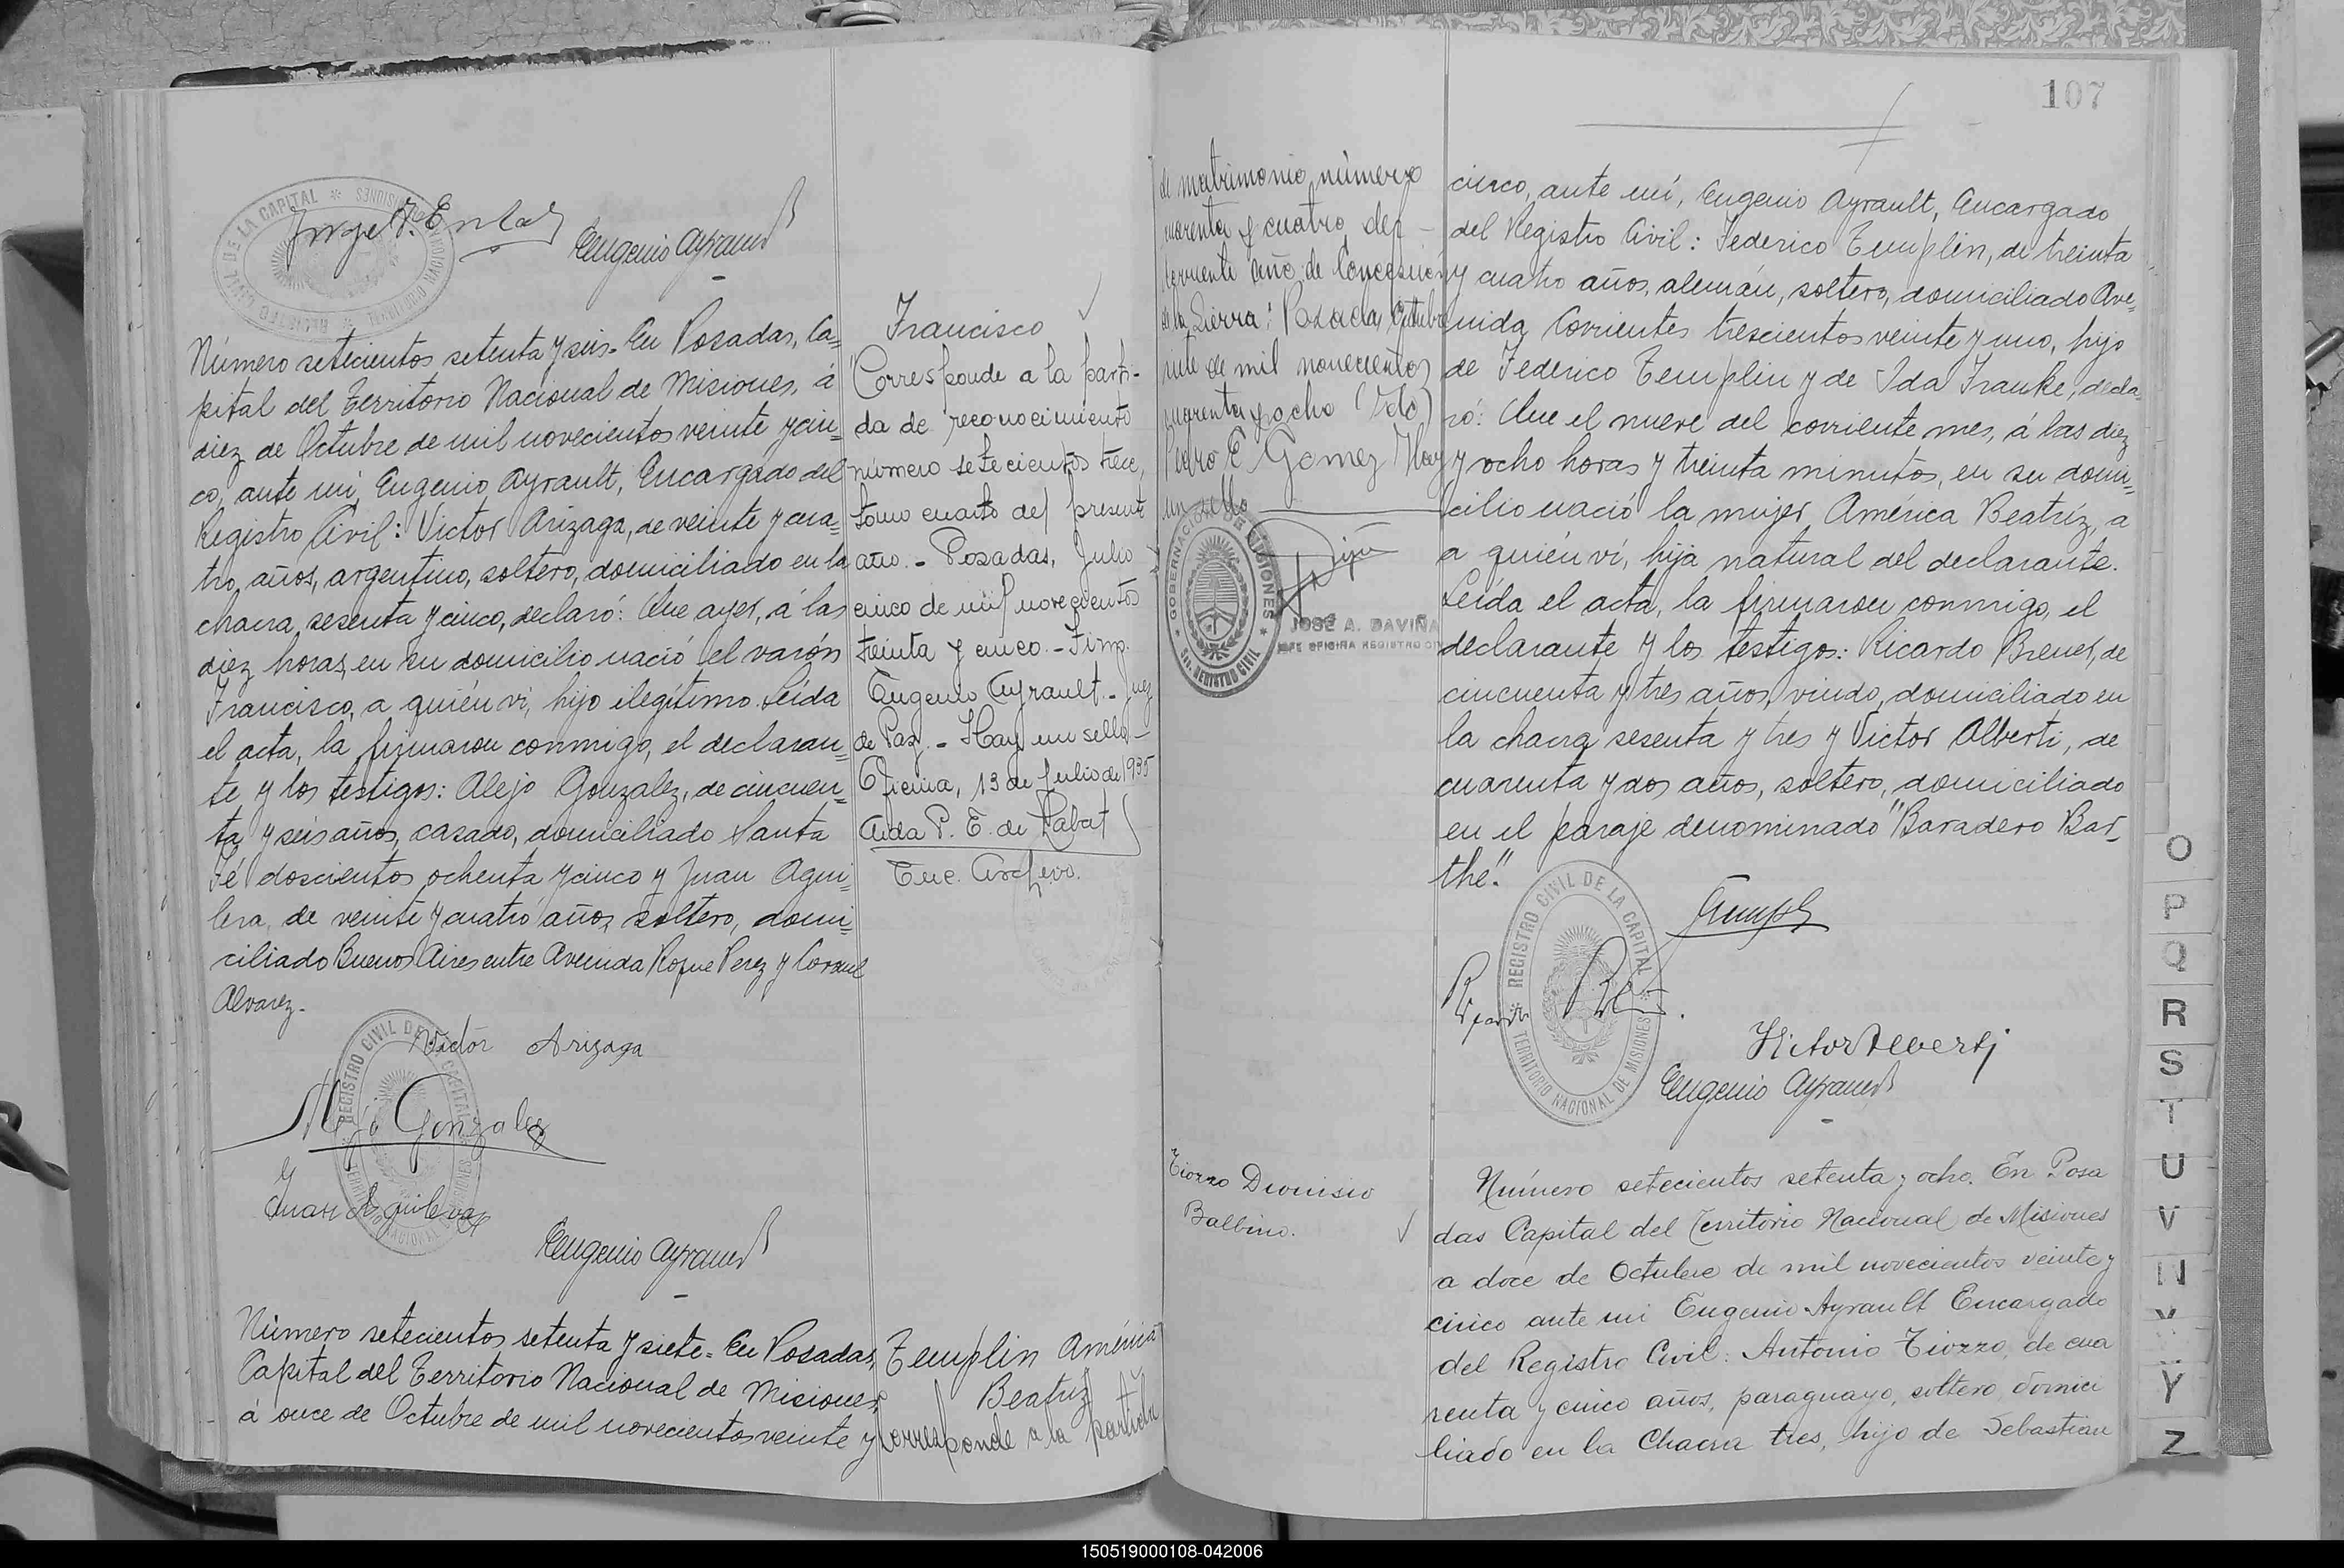 REGISTRO CIVIL DE LA CAPITAL * TERRITORIO NACIONAL DE MISIONES *
Eugenio Ayrault
Número setecientos setenta y seis. En Posadas, Ca=
pital del Territorio Nacional de Misiones, á
diez de Octubre de mil novecientos veinte y cin=
co, ante mí, Eugenio Ayrault, Encargado del
Registro Civil: Victor Arizaga, de veinte y cua=
tro, años, argentino, soltero, domiciliado en la
chacra sesenta y cinco, declaró: Que ayer, á las
diez horas, en su domicilio nació el varón
Francisco, a quién vi, hijo ilegítimo. Leída
el acta, la firmaron conmigo, el declaran=
te y los testigos: Alejo Gonzalez, de cincuen=
ta y seis años, casado, domiciliado Santa
Fé doscientos ochenta y cinco y Juan Agui=
lera, de veinte y cuatro años, soltero, domi=
ciliado Buenos Aires entre Avenida Roque Perez y Coronel
Alvarez.
Francisco
Corresponde a la parti-
da de reconocimiento
número setecientos trece,
tomo cuarto del presente
año. - Posadas, Julio
cinco de mil novecientos
treinta y cinco. - Firm.
Eugenio Ayrault - Juez
de Paz. - Hay un sello -
Oficina, 13 de Julio de 1935
Aida P. E. de Rabat
Enc. Archivo.
Victor Arizaga
REGISTRO CIVIL DE LA CAPITAL * TERRITORIO NACIONAL DE MISIONES *
Alejo Gonzalez
Juan Aguilera
Eugenio Ayrault
Número setecientos setenta y siete. En Posadas,
Capital del Territorio Nacional de Misiones,
á once de Octubre de mil novecientos veinte y
Templin América
Beatriz
Corresponde a la partida
107
de matrimonio número
cuarenta y cuatro del -
corriente año de Concepción
de la Sierra: Posadas Octubre
siete de mil novecientos
cuarenta y ocho (Fdo)
Pedro E Gomez Hay
un sello
GOBERNACION DE MISIONES * REGISTRO CIVIL *
JOSÉ A. DAVIÑA
JEFE OFICINA REGISTRO CI
cinco, ante mí, Eugenio Ayrault, Encargado
del Registro Civil: Federico Templin, de treinta
y cuatro años, alemán, soltero, domiciliado Ave=
nida Corrientes trescientos veinte y uno, hijo
de Federico Templin y de Ida Franke, decla=
ró: Que el nueve del corriente mes, á las diez
y ocho horas y treinta minutos, en su domi=
cilio nació la mujer América Beatríz, a
a quién ví, hija natural del declarante.
Leída el acta, la firmaron conmigo, el
declarante y los testigos: Ricardo Brener, de
cincuenta y tres años, viudo, domiciliado en
la chacra sesenta y tres y Victor Alberti, de
cuarenta y dos años, soltero, domiciliado
en el paraje denominado "Baradero Bar_
thé".
REGISTRO CIVIL DE LA CAPITAL * TERRITORIO NACIONAL DE MISIONES *
Victor Alberti
Eugenio Ayrault
Tiozzo Dionisio
Balbino.
Número setecientos setenta y ocho. En Posa
das Capital del Territorio Nacional de Misiones
a doce de Octubre de mil novecientos veinte y
cinco ante mi Eugenio Ayrault Encargado
del Registro Civil: Antonio Tiozzo, de cua
renta y cinco años, paraguayo, soltero, domici
liado en la Chacra tres, hijo de Sebastian
O
P
Q
R
S
T
U
V
W
Y
Z
150519000108-042006